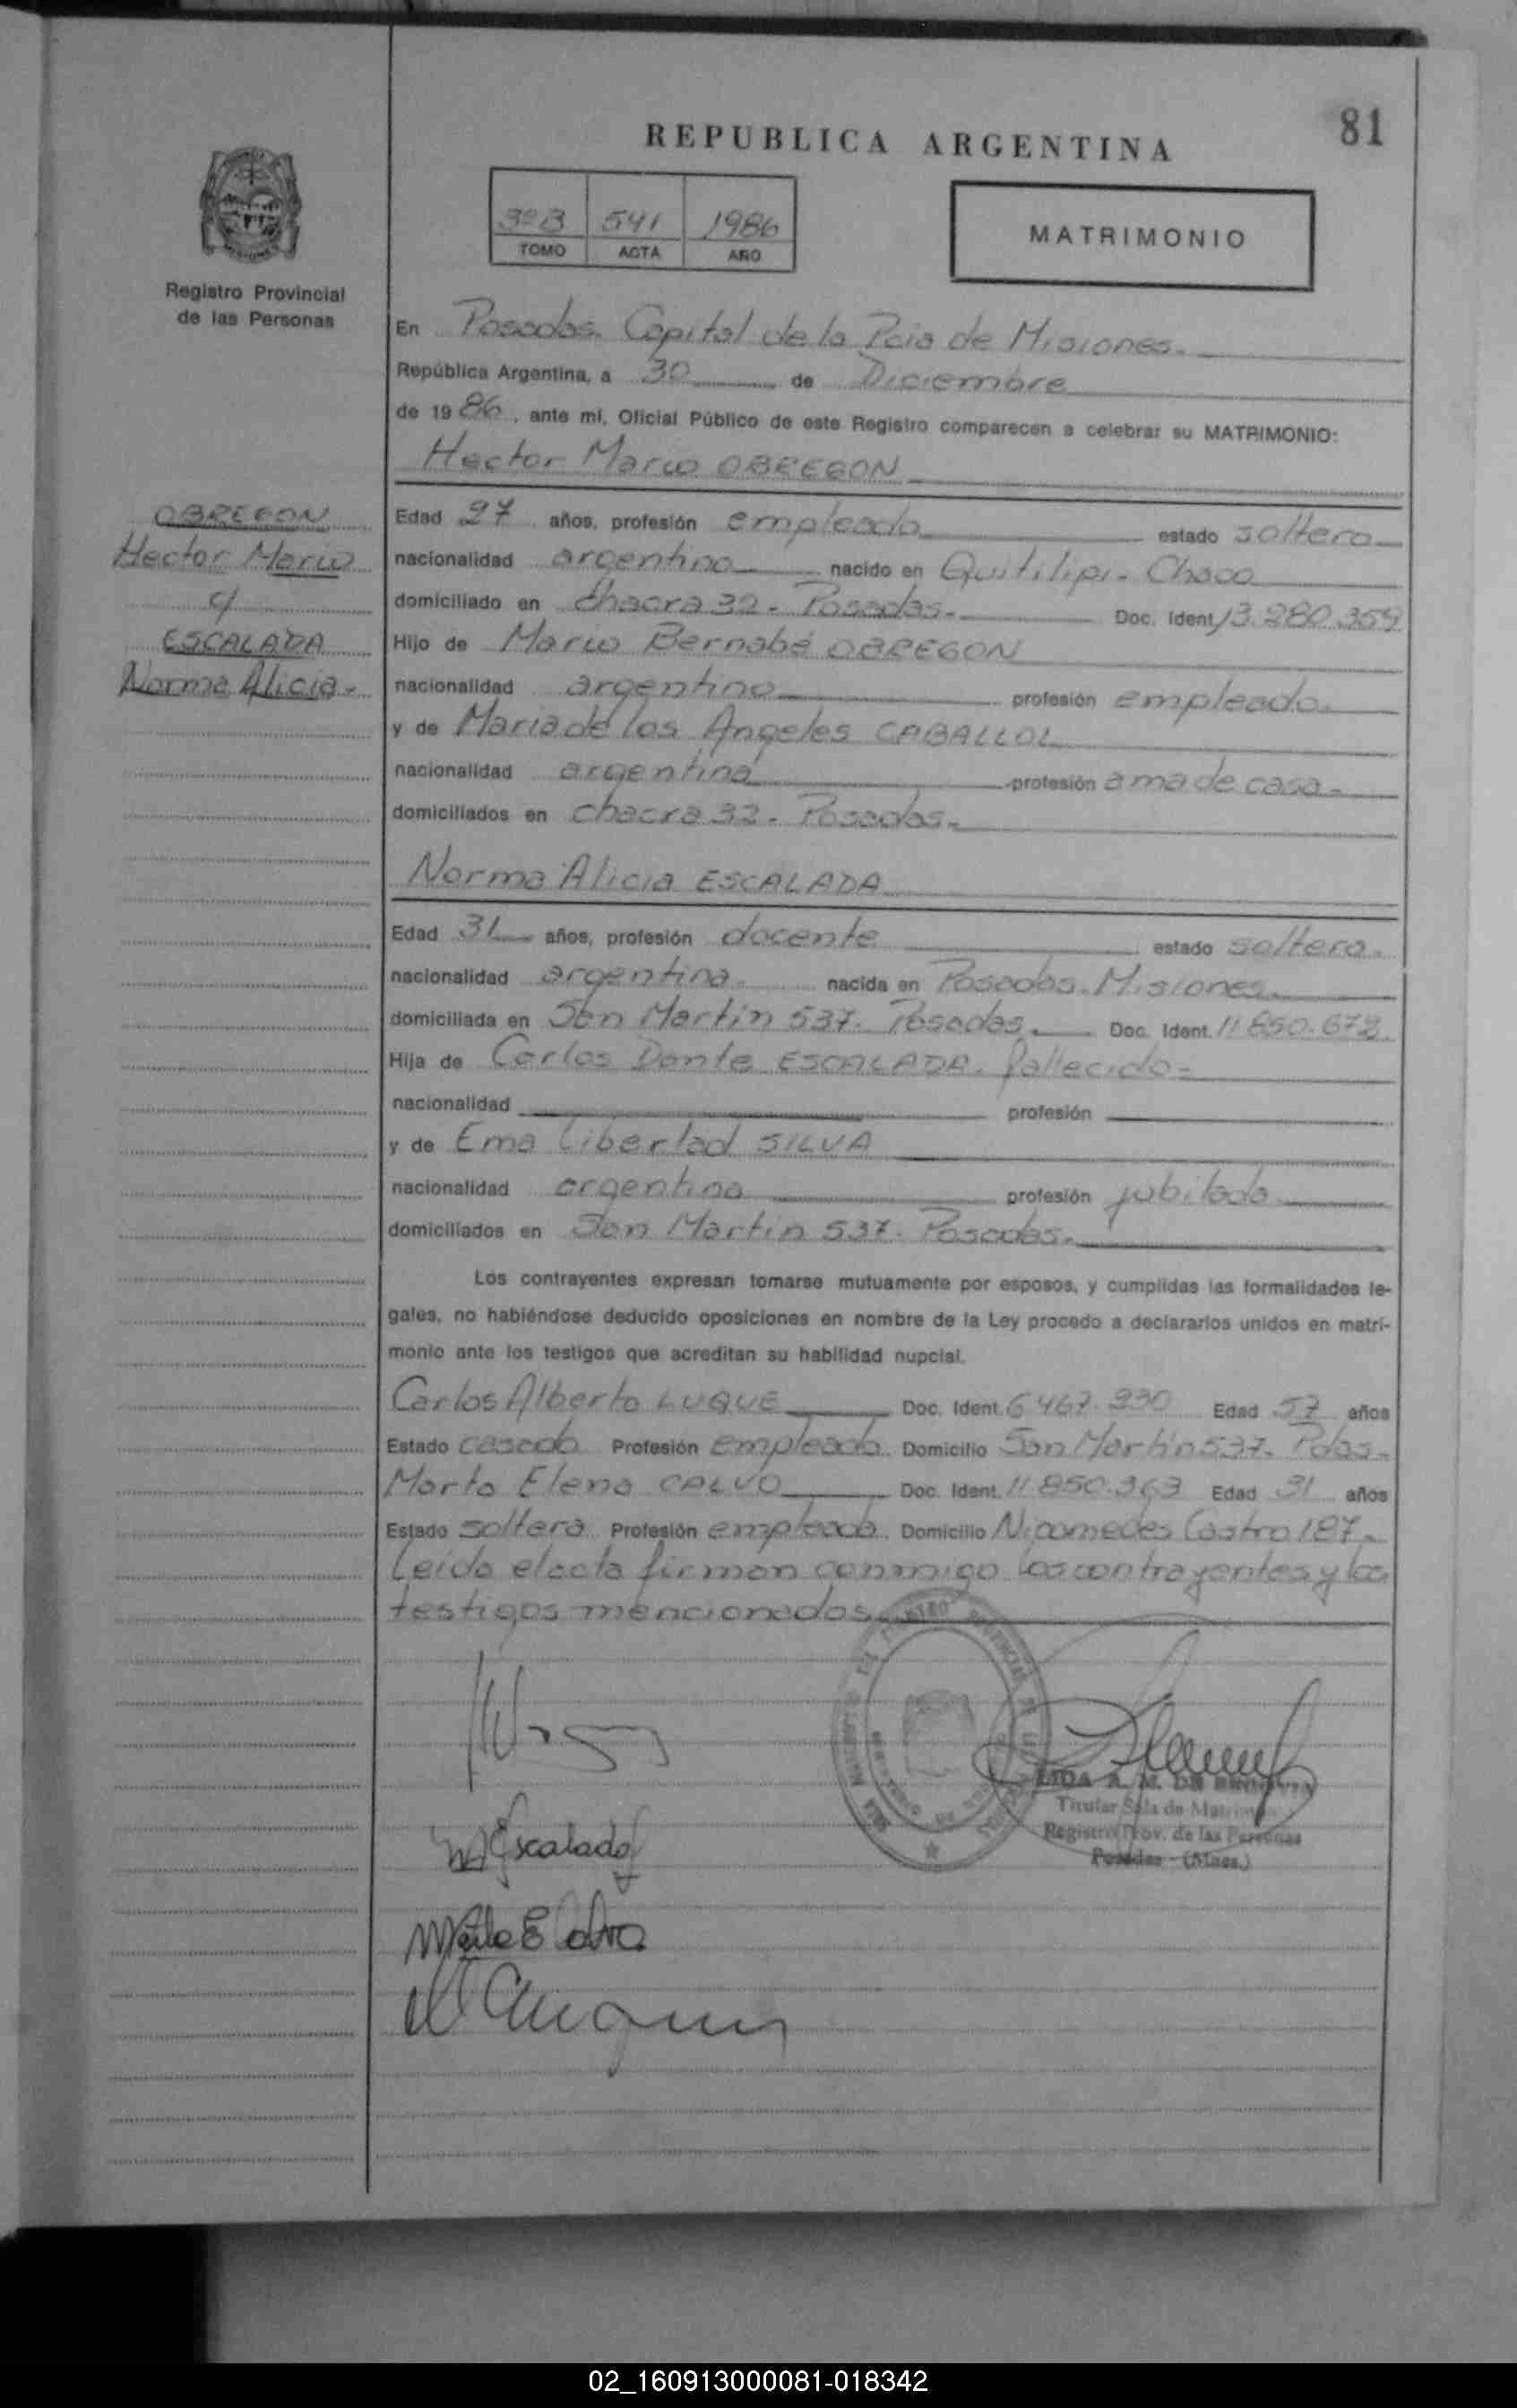 81
REPUBLICA ARGENTINA
3ºB 541 1986
TOMO ACTA AÑO
MATRIMONIO
Registro Provincial
de las Personas
En Posadas. Capital de la Pcia de Misiones.
República Argentina, a 30 de Diciembre
de 1986, ante mí, Oficial Público de este Registro comparecen a celebrar su MATRIMONIO:
Hector Mario OBREGON
OBREGON
Hector Mario
c/
ESCALADA
Norma Alicia.
Edad 27 años, profesión empleado estado soltero
nacionalidad argentino nacido en Quitilipi. Chaco
domiciliado en chacra 32. Posadas. Doc. Ident. 13.280.359
Hijo de Mario Bernabé OBREGON
nacionalidad argentino profesión empleado.
y de Maria de los Angeles CABALLOL
nacionalidad argentina profesión ama de casa.
domiciliados en chacra 32. Posadas.
Norma Alicia ESCALADA
Edad 31 años, profesión docente estado soltera.
nacionalidad argentina. nacida en Posadas. Misiones.
domiciliada en San Martin 537. Posadas. Doc. Ident. 11.850.673.
Hija de Carlos Dante ESCALADA. fallecido=
nacionalidad profesión
y de Ema Libertad SILVA
nacionalidad argentina profesión jubilada
domiciliados en San Martin 537. Posadas.
Los contrayentes expresan tomarse mutuamente por esposos, y cumplidas las formalidades le-
gales, no habiéndose deducido oposiciones en nombre de la Ley procedo a declararlos unidos en matri-
monio ante los testigos que acreditan su habilidad nupcial.
Carlos Alberto LUQUE Doc. Ident. 6467.930 Edad 57 años
Estado casado Profesión empleado. Domicilio San Martin 537. Pdas.
Marta Elena CALVO Doc. Ident. 11.850.363 Edad 31 años
Estado soltera Profesión empleada. Domicilio Nicomedes Castro 187.
Leída el acta firman conmigo los contrayentes y los
testigos mencionados.
Escalada
Titular Sala de
Registro Prov. de las Personas
Posadas - (Mnes.)
02_160913000081-018342